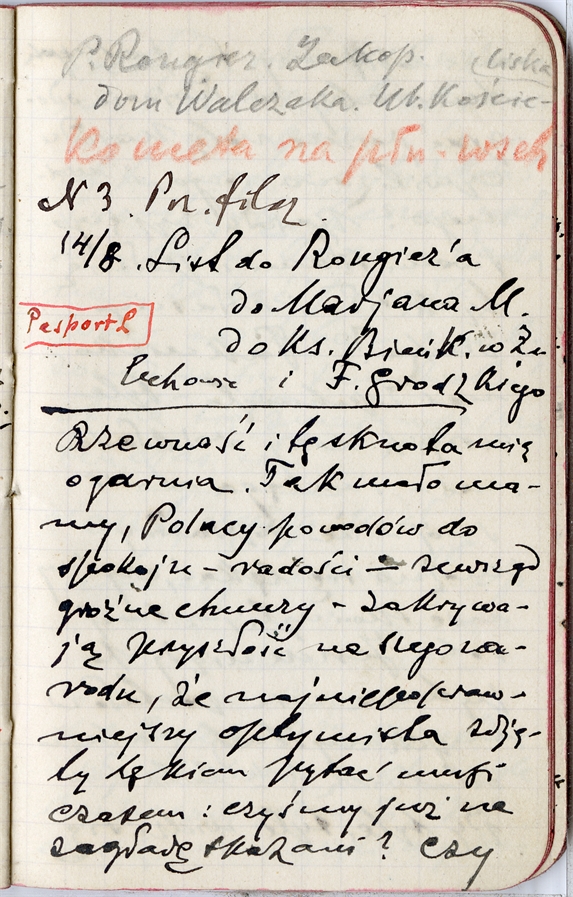 P. Rongier. Zakop.
(liska
dom Walczaka. Ul. Koście-
Kometa na płn-wsch
N 3. Por. filoz.
14/8. List do Rongier'a
do Marjana M.
Pasport L
do Ks. w Żu
i F. Grodzkiego
Rzewność i tęsknota mię
ogarnia. Tak mało ma-
my, Polacy powodów do
spokoju - radości - zewsząd
groźne chmury - zakrywa-
ją przyszłość naszego na-
rodu, że
niejszy optymista zdję-
ty lękiem pytać musi
czasem: czyśmy już na
zagładę skazani? Czy